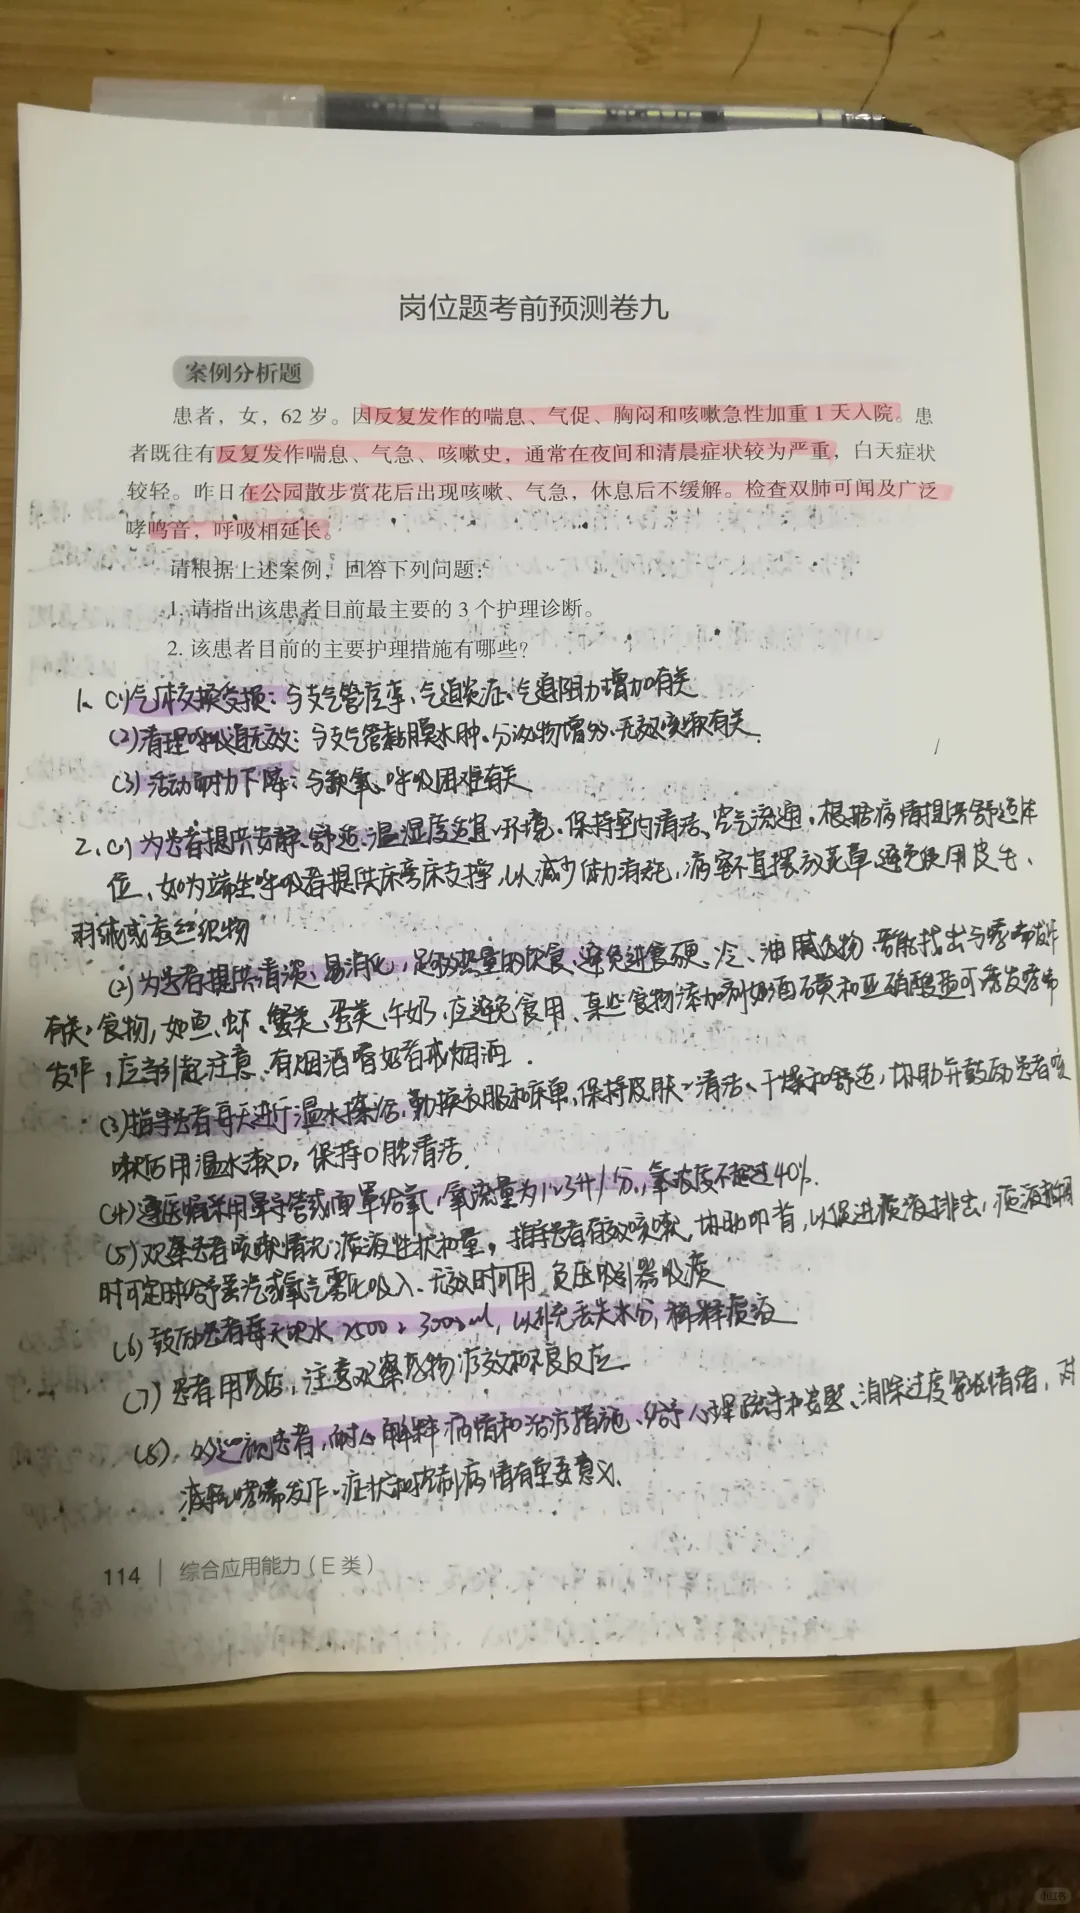 岗位题考前预测卷九
案例分析题
患者，女，62岁。因反复发作的喘息、气促、胸闷和咳嗽急性加重1天入院。患
者既往有反复发作喘息、气急、咳嗽史，通常在夜间和清晨症状较为严重，白天症状
较轻。昨日在公园散步赏花后出现咳嗽、气急，休息后不缓解。检查双肺可闻及广泛
哮鸣音，呼吸相延长。
请根据上述案例，回答下列问题：
1. 请指出该患者目前最主要的3个护理诊断。
2. 该患者目前的主要护理措施有哪些？
1、(1)气体交换受损：与支气管痉挛、气道炎症、气道阻力增加有关
(2)清理呼吸道无效：与支气管黏膜水肿、分泌物增多、无效咳嗽有关
(3)活动耐力下降：与缺氧、呼吸困难有关
2、(1)为患者提供安静、舒适、温湿度适宜环境、保持室内清洁、空气流通。根据病情提供舒适体
位、如为端坐呼吸者提供床旁床支撑，以减少体力消耗，病室不宜摆放花草避免使用皮毛、
羽绒或蚕丝织物
(2)为患者提供清淡、易消化，足够热量的饮食、避免进食硬、冷、油腻食物 若能找出与哮喘发作
有关食物，如鱼、虾、蟹类、蛋类、牛奶，应避免食用、某些食物添加剂如酒石磺和亚硝酸盐可诱发哮喘
发作，应引起注意、有烟酒嗜好者戒烟酒．
(3)指导患者每天进行温水擦浴，勤换衣服和床单，保持皮肤清洁、干燥和舒适，协助并鼓励患者咳
嗽后用温水漱口，保持口腔清洁
(4)遵医嘱采用鼻导管或面罩给氧，氧流量为1~3升/分，氧浓度不超过40%.
(5)观察患者咳嗽情况、痰液性状和量，指导患者有效咳嗽，协助叩背，以促进痰液排出，痰液
时可定时给予蒸汽或氧气雾化吸入、无效时可用负压吸引器吸痰
(6)鼓励患者每天饮水2500~3000ml，以补充丢失水分，稀释痰液
(7)患者用药后，注意观察药物疗效和不良反应
(8)、多巡视患者，耐心解释病情和治疗措施、给予心理疏导和安慰、消除过度紧张情绪，对
减轻哮喘发作、症状和控制病情有重要意义.
114 | 综合应用能力（E类）
小红书